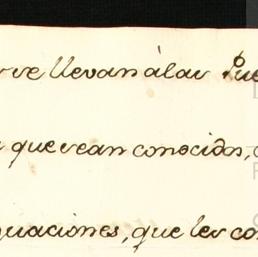 se llevan á las Pue
que sean conocidos,
uaciones, que les co